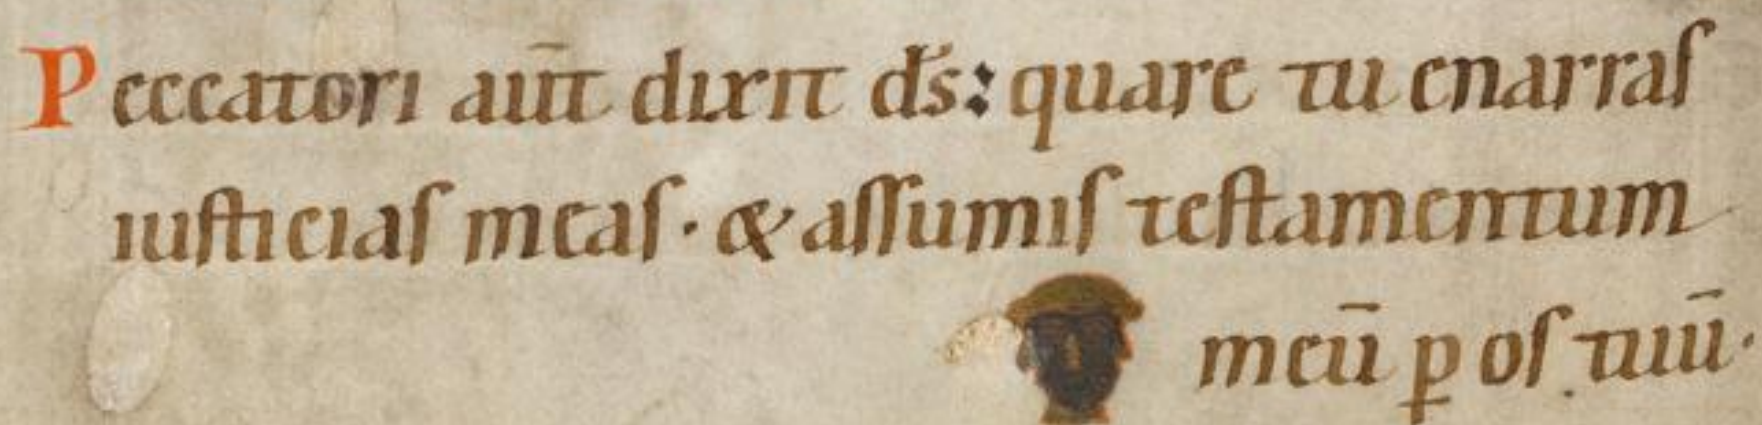 Peccatori aūt dixit d̄s: quare tu enarraſ
iuſticiaſ meaſ · & aſſumiſ teſtamentum
meū ꝑ oſ tuū·